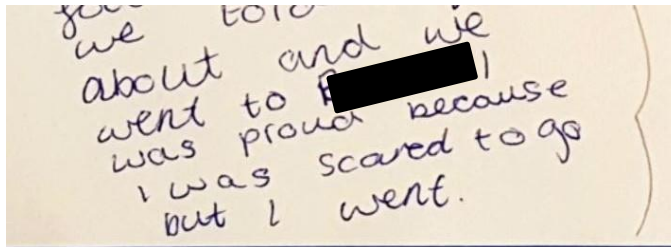 we told
about and we
went to I
was proud because
I was scared to go
but I went.